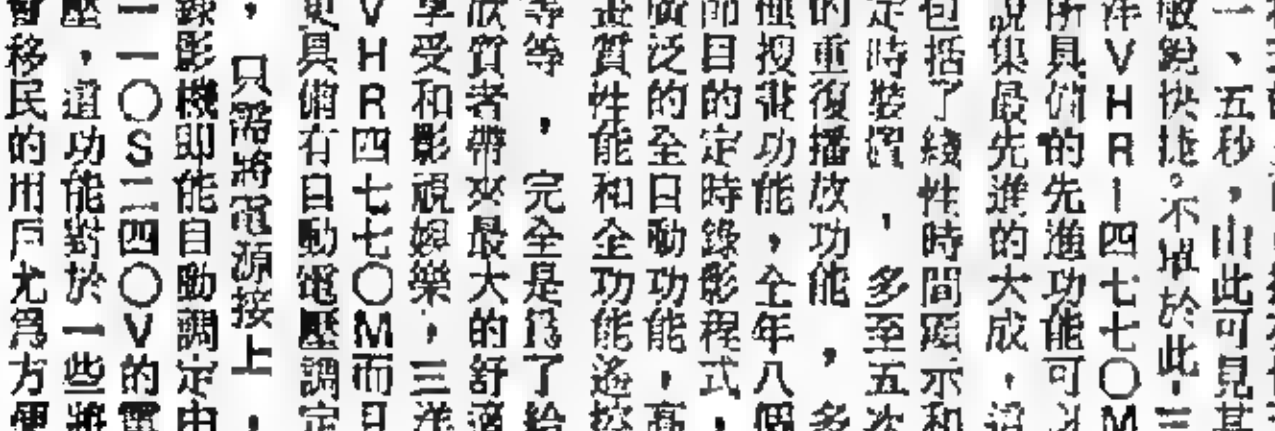 一、五秒，由此可見其
敏銳快捷。不單於此，三
洋VHR－四七七〇M
所具備的先進功能可
說集最先進的大成，這
包括了綫性時間顯示和
定時裝置，多至五次
的重復播放功能，多
極搜尋功能，全年八個
節目的定時錄影程式，
廣泛的全自動功能，高
畫質性能和全功能遙控
等等，完全是爲了給
欣賞者帶來最大的舒適
享受和影視娛樂，三洋
VHR四七七〇M而且
更具備有自動電壓調定
，只需將電源接上，
錄影機即能自動調定由
一一〇S二四〇V的電
壓，這功能對於一些將
會移民的用戶尤爲方便